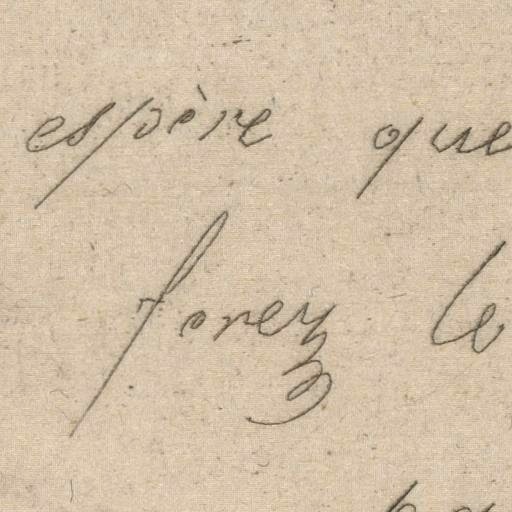 espère que
forez le